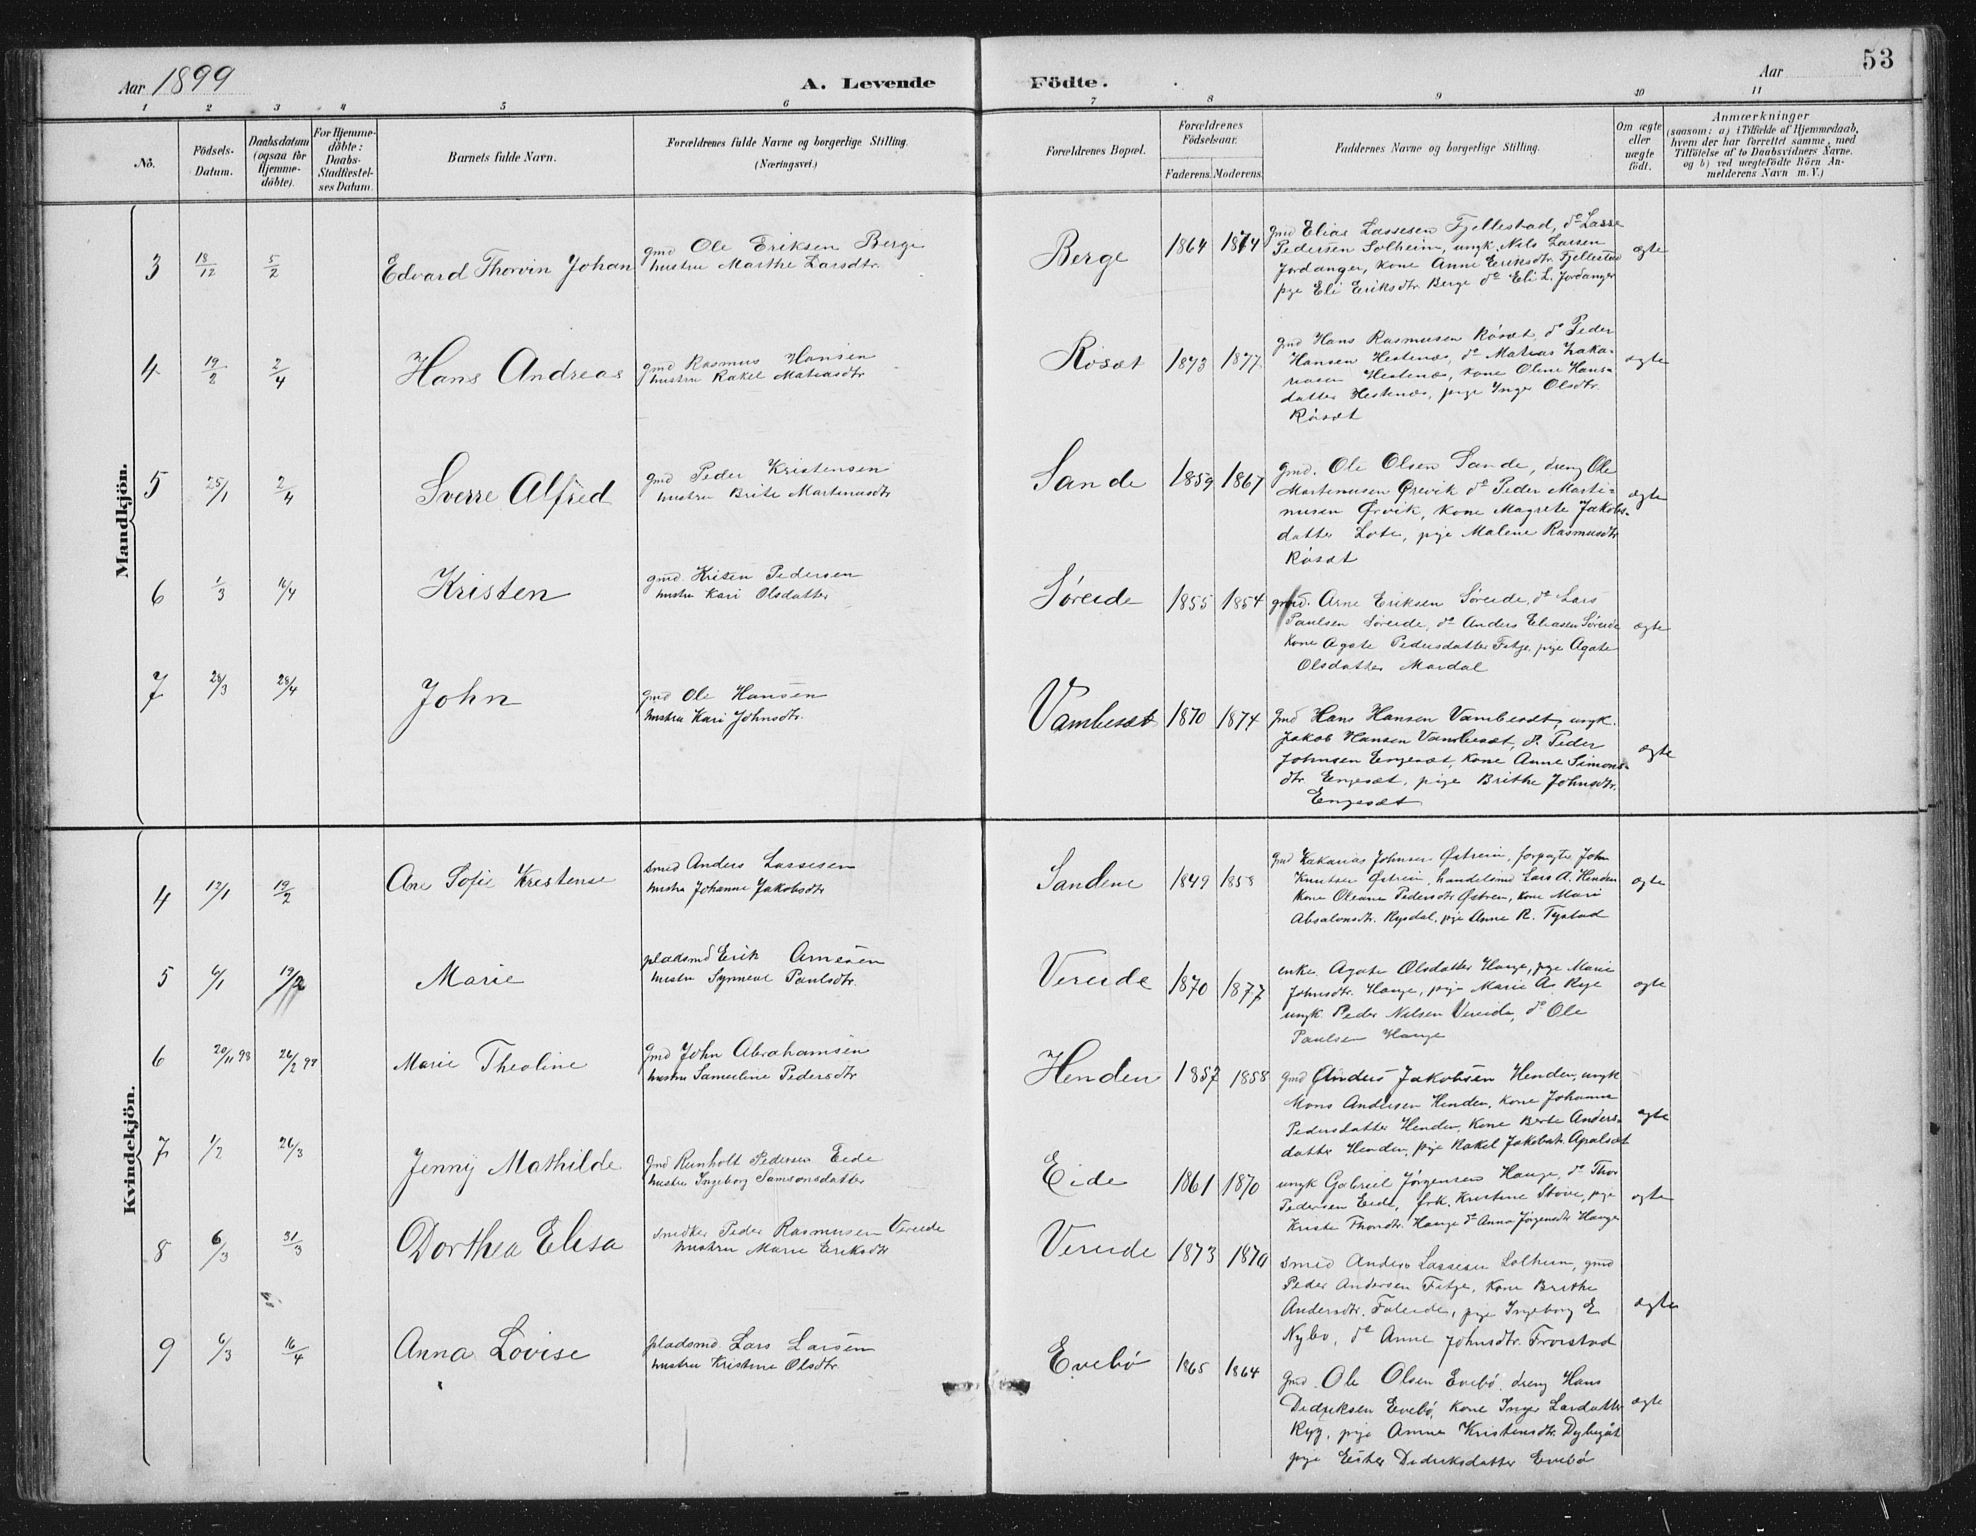 53
Aar 1899
A. Levende
Födte.
Aar
1 2 3 4 5 6 7 8 9 10 11
No.
Födsels-
Datum.
Daabsdatum
(ogsaa for
Hjemme-
döbte).
For Hjemme-
döbte:
Daabs-
Stadfæstel-
ses Datum.
Barnets fulde Navn.
Forældrenes fulde Navne og borgerlige Stilling.
(Næringsvei.)
Forældrenes Bopæl.
Forældrenes
Födselsaar.
Faderens. Moderens.
Faddernes Navne og borgerlige Stilling.
Om ægte
eller
uægte
födt.
Anmærkninger
(saasom: a) i Tilfælde af Hjemmedaab,
hvem der har forrettet samme, med
Tilföielse af to Daabsvidners Navne.
og b) ved uægtefödte Börn An-
melderens Navn m.V.)
Mandkjön.
3 18/12 5/2 Edvard Thorvin Johan
gmd Ole Eriksen Berge
hustru Marthe Larsdtr.
Berge 1864 1874
gmd Elias Lassesen Fjellestad, do Lasse
Pedersen Solheim, ungk. Nils Larsen
Jordanger, kone Anne Eriksdtr. Fjellestad
pige Eli Eriksdtr Berge do Eli L. Jordanger
ægte
4 19/2 2/4 Hans Andreas
gmd Rasmus Hansen
hustru Rakel Matiasdtr
Rösæt 1873 1877
gmd Hans Rasmusen Rösæt do Peder
Hansen Hestenæs, do Matias Zaka-
riasen Hestenæs, kone Oline Hans-
datter Hestenæs, pige Inger Olsdtr.
Rösæt
ægte
5 25/1 2/4 Sverre Alfred
gmd Peder Kristensen
hustru Brite Martinusdtr
Sande 1859 1867
gmd. Ole Olsen Sande, dreng Ole
Martinusen Ørevik do Peder Marti-
nusen Ørvik, kone Magrete Jakobs-
datter Lote, pige Malene Rasmusdtr
Røsæt
ægte
6 1/3 16/4 Kristen
gmd. Kristen Pedersen
hustru Kari Olsdatter
Søreide 1855 1854
gmd. Arne Eriksen Søreide, do Lars
Paulsen Søreide, do Anders Eliasen Søreide
kone Agate Pedersdatter Fitje, pige Agate
Olsdatter Mardal
ægte
7 28/3 28/4 John
gmd Ole Hansen
hustru Kari Johnsdtr.
Vambesæt 1870 1874
gmd Hans Hansen Vambesæt, ungk.
Jakob Hansen Vambesæt, do Peder
Johnsen Engesæt, kone Anne Simons-
dtr. Engesæt, pige Brithe Johnsdtr.
Engesæt
ægte
Kvindekjön.
4 12/1 19/2 Ane Sofie Kristense
smed Anders Lassesen
hustru Johanne Jakobsdtr
Sandene 1849 1858
gmd Zakarias Johnsen Østrein, forpagter John
Knutsen Østrein, handelsmd Lars A. Henden
kone Oleane Pedersdtr Østrein, kone Mari
Absalonsdtr. Rysdal, pige Anne R. Tystad
ægte
5 6/1 19/2 Marie
pladsmd Erik Arnesen
hustru Synneve Paulsdtr.
Vereide 1870 1877
enke. Agate Olsdatter Hauge, pige Marie
Johnsdtr. Hauge, pige Marie As Rye
ungk. Peder Nilsen Vereide, do Ole
Paulsen Hauge
ægte
6 20/11 98 26/2 99 Marie Theoline
gmd John Abrahamsen
hustru Samueline Pedersdtr
Henden 1857 1858
gmd Anders Jakobsen Henden, ungk
Mons Andersen Henden, kone Johanne
Pedersdatter Henden, kone Berte Anders-
datter Henden, pige Rakel Jakobsdtr. Apalsæt
ægte
7 1/2 26/3 Jenny Mathilde
gmd Runholt Pedersen Eide
hustru Ingeborg Samsonsdatter
Eide 1861 1870
ungk Gabriel Jørgensen Hauge, do Thor
Pedersen Eide, frk. Kristine Støve, pige
Kriste Thordtr. Hauge do Anna Jørgensdtr Hauge
ægte
8 6/3 31/3 Dorthea Elisa
snedker Peder Rasmusen Vereide
hustru Marie Eriksdtr
Vereide 1873 1870
smed Anders Lassesen Solheim, gmd
Peder Andersen Fitje, kone Brithe
Andersdtr. Foleide, pige Ingeborg E
Nybø, do Anne Johnsdtr. Froistad
ægte
9 6/3 16/4 Anna Lovise
pladsmd Lars Larsen
hustru Kristine Olsdtr
Evebø 1865 1864
gmd. Ole Olsen Evebø, dreng Hans
Didriksen Evebø, kone Inger Larsdatter
Ryg, pige Anna Kristensdtr. Dybegåt
pige Ester Didriksdatter Evebø
ægte